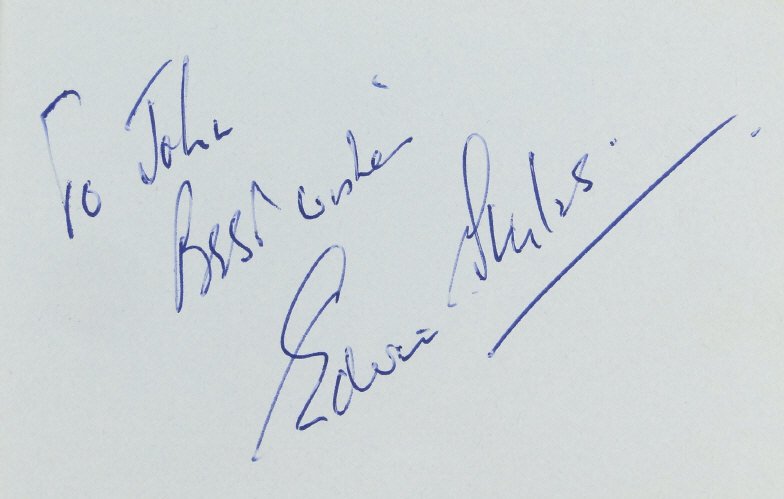 To John
Best wishes
Edwin Styles.